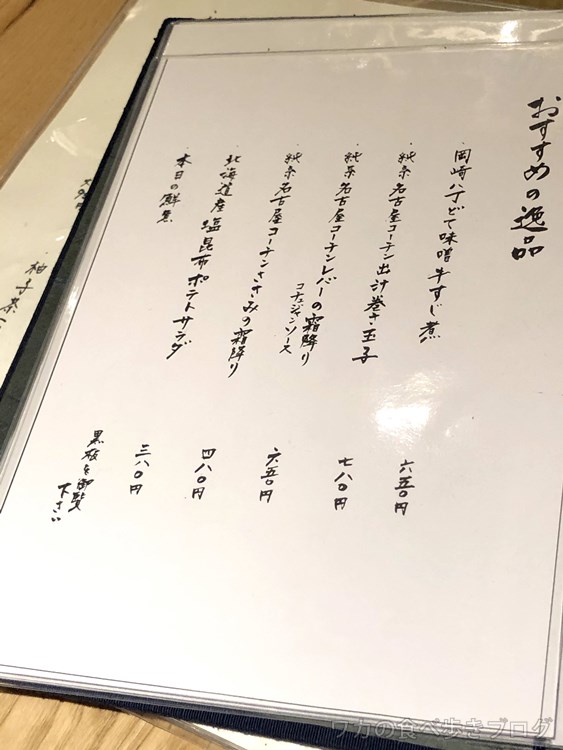 おすすめの逸品
・岡崎八丁どて味噌牛すじ煮
六五〇円
・純系名古屋コーチン出汁巻き玉子
七八〇円
・純系名古屋コーチンレバーの霜降り
コチュジャンソース
六五〇円
・純系名古屋コーチンささみの霜降り
四八〇円
・北海道産塩昆布ポテトサラダ
三八〇円
・本日の鮮魚
黒板を御覧
下さい
・柚子茶
ワカの食べ歩きブログ